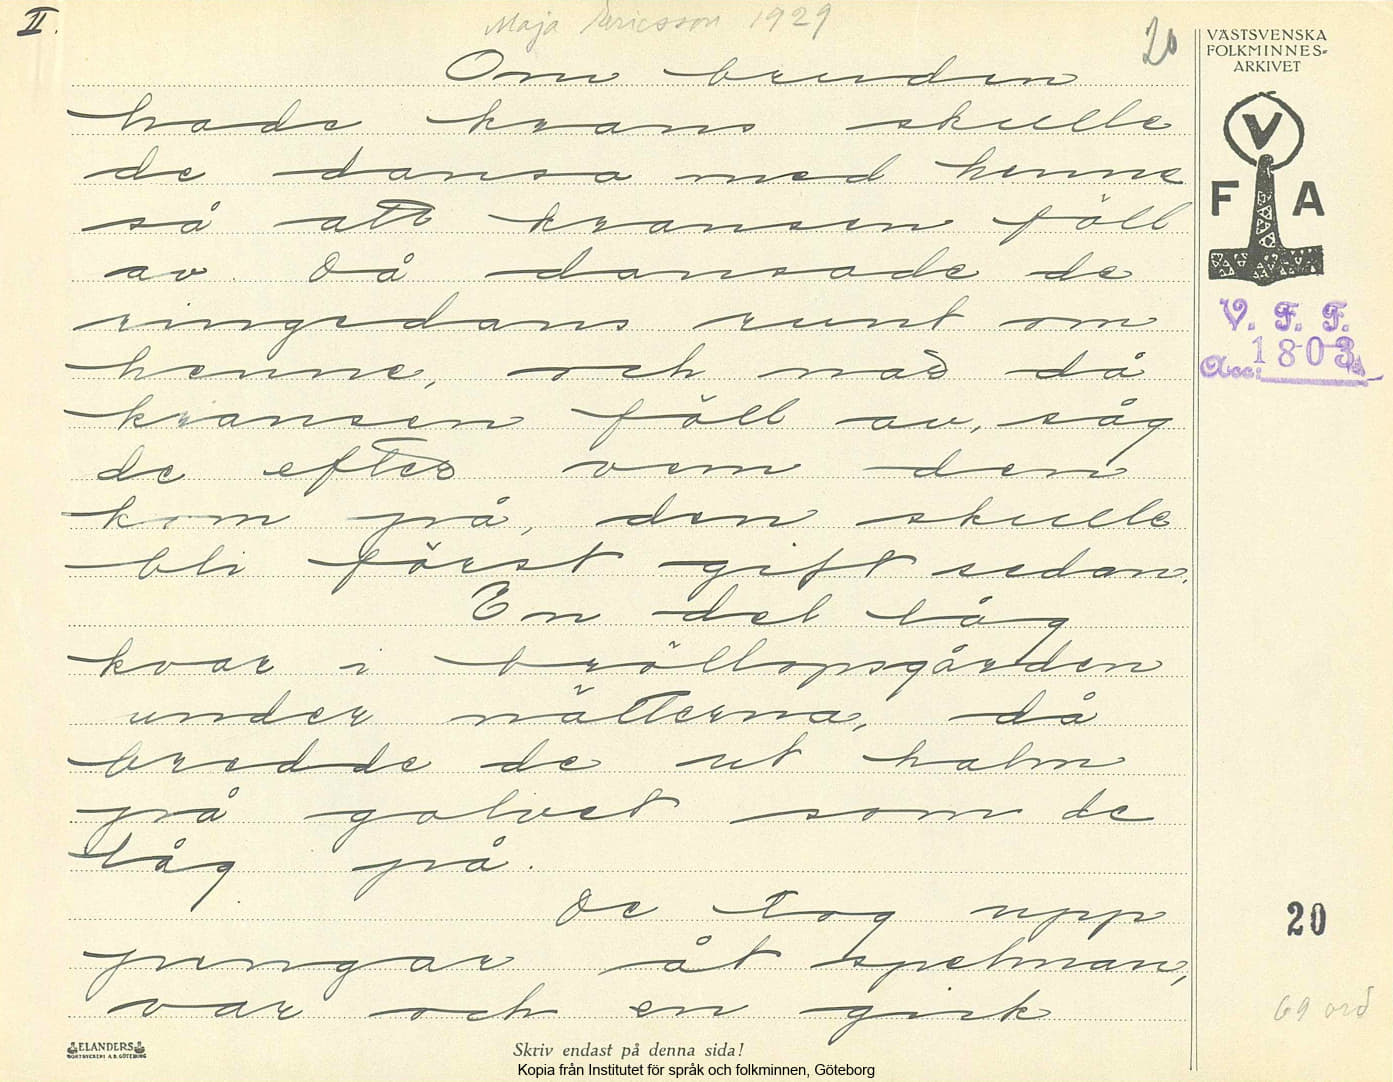 II.
Maja Ericsson 1929
20
VÄSTSVENSKA
FOLKMINNES-
ARKIVET
V
F A
V. F. F.
Acc: 1803
Om bruden
hade krans skulle
de dansa med henne
så att kransen föll
av. Då dansade de
ringdans runt om
henne, och når då
kransen föll av, såg
de efter vem den
kom på, den skulle
bli först gift sedan.
En del låg
kvar i bröllopsgården
under nätterna, då
bredde de ut halm
på golvet som de
låg på.
De tog upp
pengar åt spelman,
var och en gick
20
69 ord
ELANDERS
BOKTRYCKERI A.B. GÖTEBORG
Skriv endast på denna sida!
Kopia från Institutet för språk och folkminnen, Göteborg